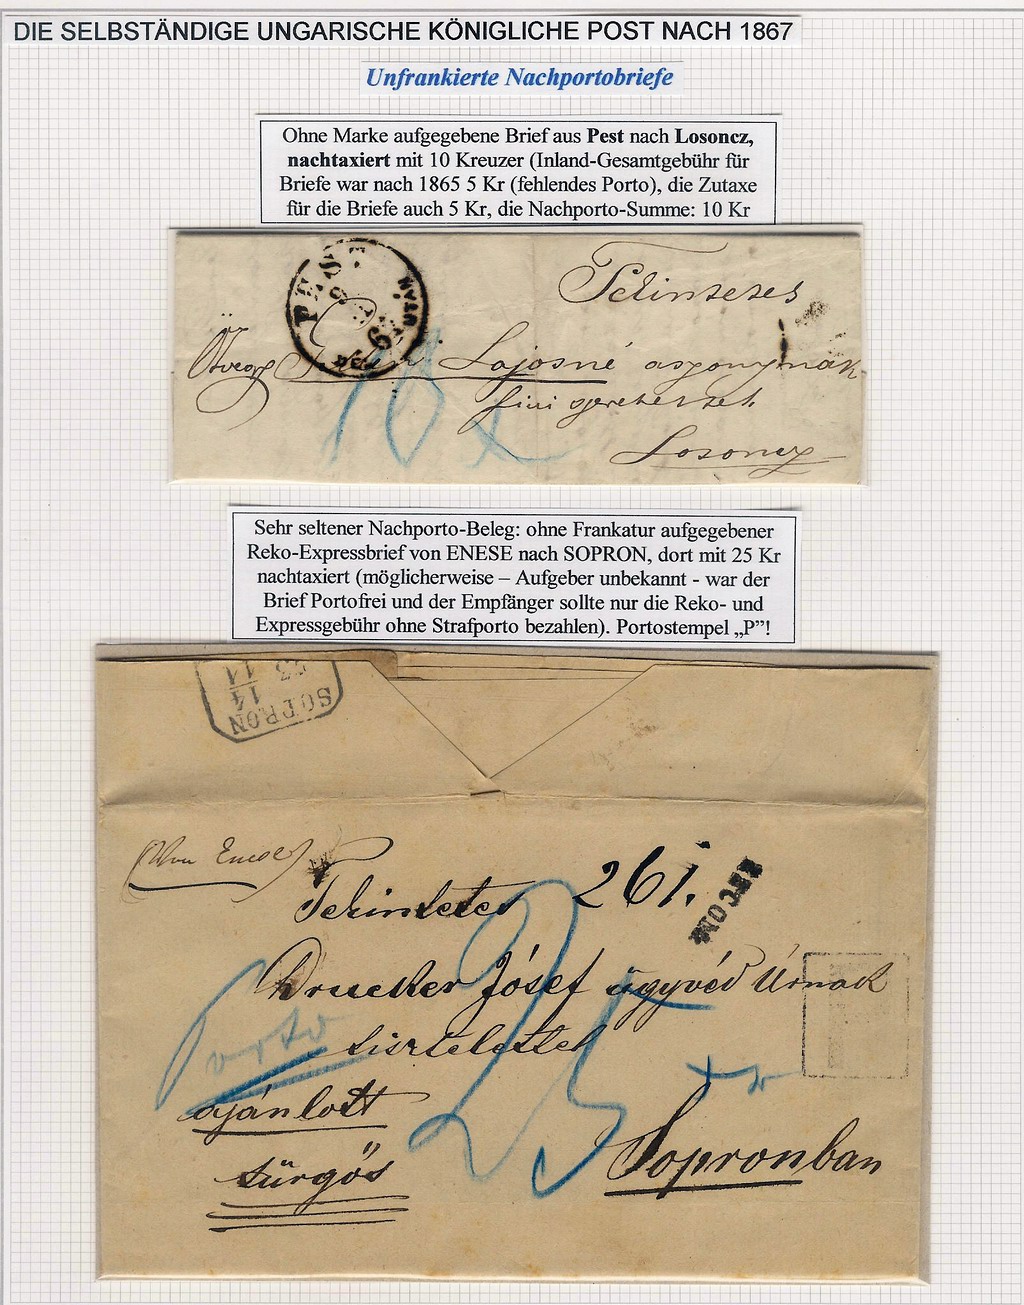 DIE SELBSTÄNDIGE UNGARISCHE KÖNIGLICHE POST NACH 1867
Unfrankierte Nachportobriefe
Ohne Marke aufgegebene Brief aus Pest nach Losoncz,
nachtaxiert mit 10 Kreuzer (Inland-Gesamtgebühr für
Briefe war nach 1865 5 Kr (fehlendes Porto), die Zutaxe
für die Briefe auch 5 Kr, die Nachporto-Summe: 10 Kr
PEST
UTÁN
Tekintetes
Özvegy Lajosné asszonynak
Losoncz
10 x
Sehr seltener Nachporto-Beleg: ohne Frankatur aufgegebener
Reko-Expressbrief von ENESE nach SOPRON, dort mit 25 Kr
nachtaxiert (möglicherweise – Aufgeber unbekannt - war der
Brief Portofrei und der Empfänger sollte nur die Reko- und
Expressgebühr ohne Strafporto bezahlen). Portostempel „P”!
SOPRON
14
11
Enese
261.
RECOM
Tekintetes
Drucker József ügyvéd Úrnak
tisztelettel
Porto
25 xr
ajánlott
sürgős
Sopronban